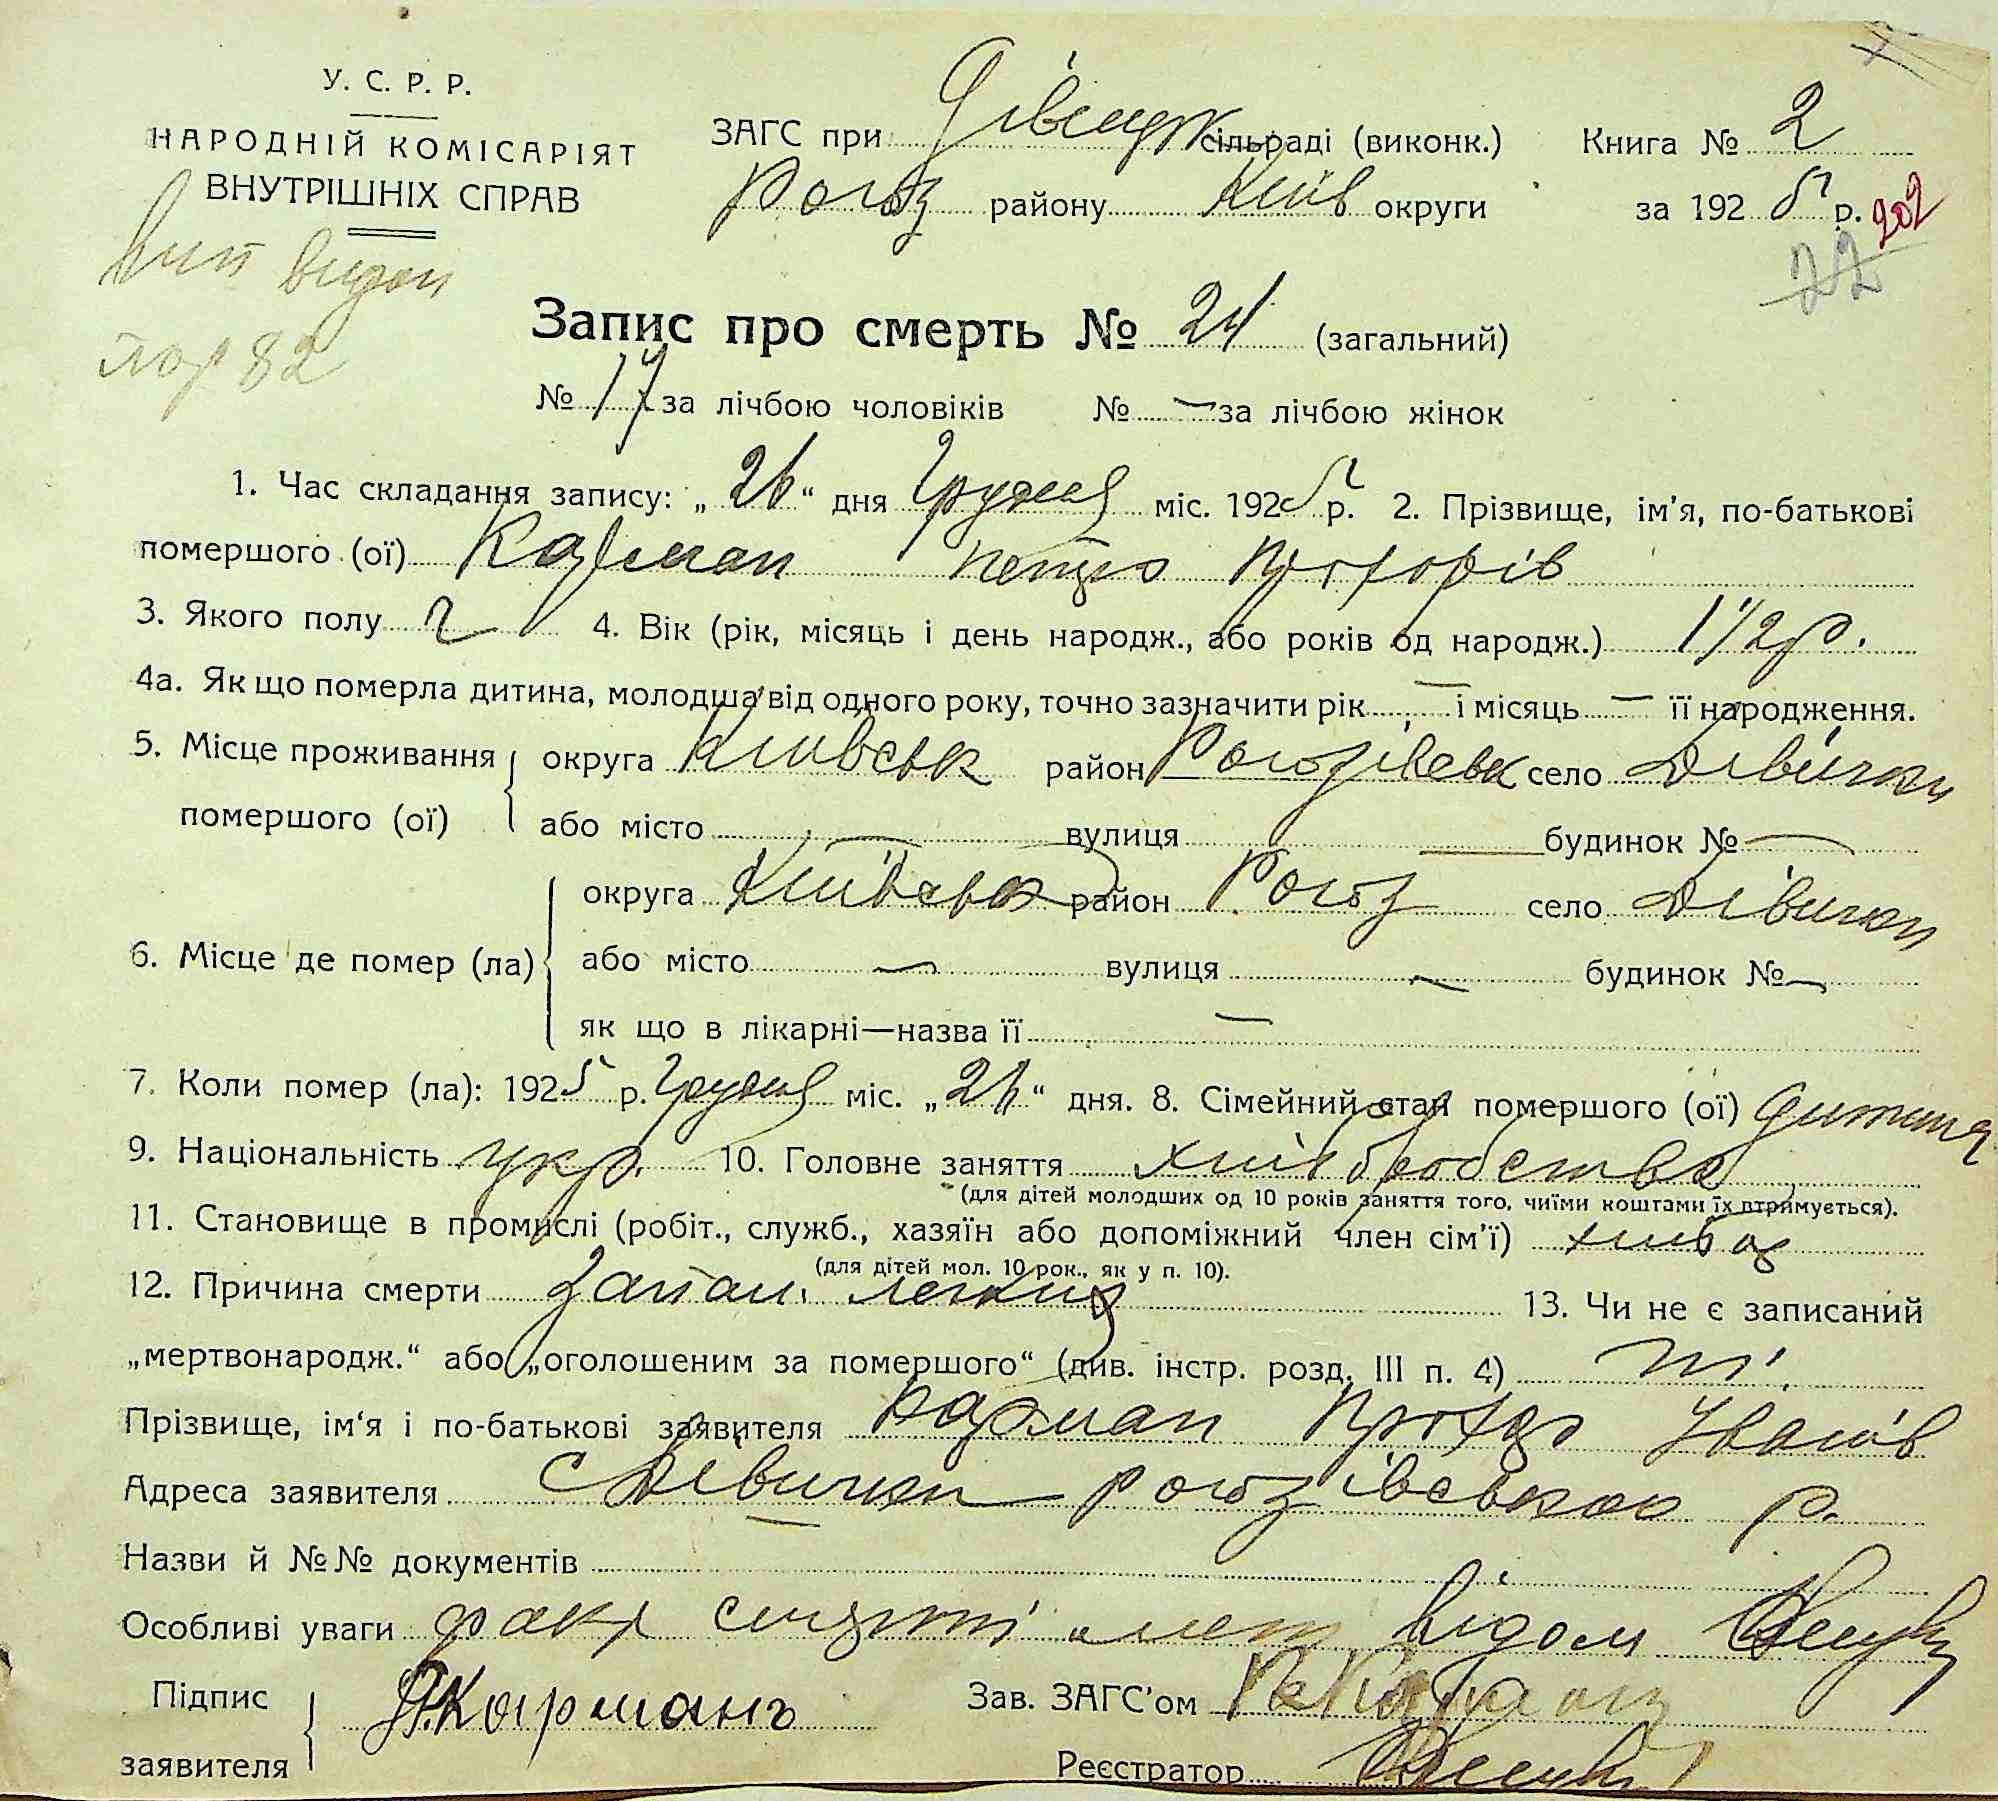 У. С. Р. Р.
НАРОДНІЙ КОМІСАРІЯТ
ВНУТРІШНІХ СПРАВ
ЗАГС при Дівицьк сільраді (виконк.) Книга № 2
Рогоз району Київ округи за 1925 р. 202
22
вип видан
Запис про смерть № 24 (загальний)
82
№ 17 за лічбою чоловіків № — за лічбою жінок
1. Час складання запису: „26“ дня Грудня міс. 1925 р. 2. Прізвище, ім'я, по-батькові
помершого (ої) Карман Петро Прохорів
3. Якого полу ч 4. Вік (рік, місяць і день народж., або років од народж.) 1 1/2 р.
4а. Як що померла дитина, молодша від одного року, точно зазначити рік — і місяць — її народження.
5. Місце проживання округа Київськ район Рогозівськ село Дівички
помершого (ої) або місто — вулиця — будинок № —
округа Київськ район Рогоз село Дівички
6. Місце де помер (ла) або місто — вулиця — будинок № —
як що в лікарні—назва її —
7. Коли помер (ла): 1925 р. Грудня міс. „26“ дня. 8. Сімейний стан помершого (ої) дитина
9. Національність укр. 10. Головне заняття хліборобство
(для дітей молодших од 10 років заняття того, чиїми коштами їх втримується).
11. Становище в промислі (робіт., служб., хазяїн або допоміжний член сім'ї)
(для дітей мол. 10 рок., як у п. 10).
12. Причина смерти запал. легких 13. Чи не є записаний
„мертвонародж.“ або „оголошеним за помершого“ (див. інстр. розд. III п. 4) ні.
Прізвище, ім'я і по-батькові заявителя Карман Прохор Іванів
Адреса заявителя с Дівички Рогозівського р.
Назви й №№ документів
Особливі уваги факт смерті мені відом
Підпис
заявителя П.Карманъ Зав. ЗАГС'ом
Реєстратор